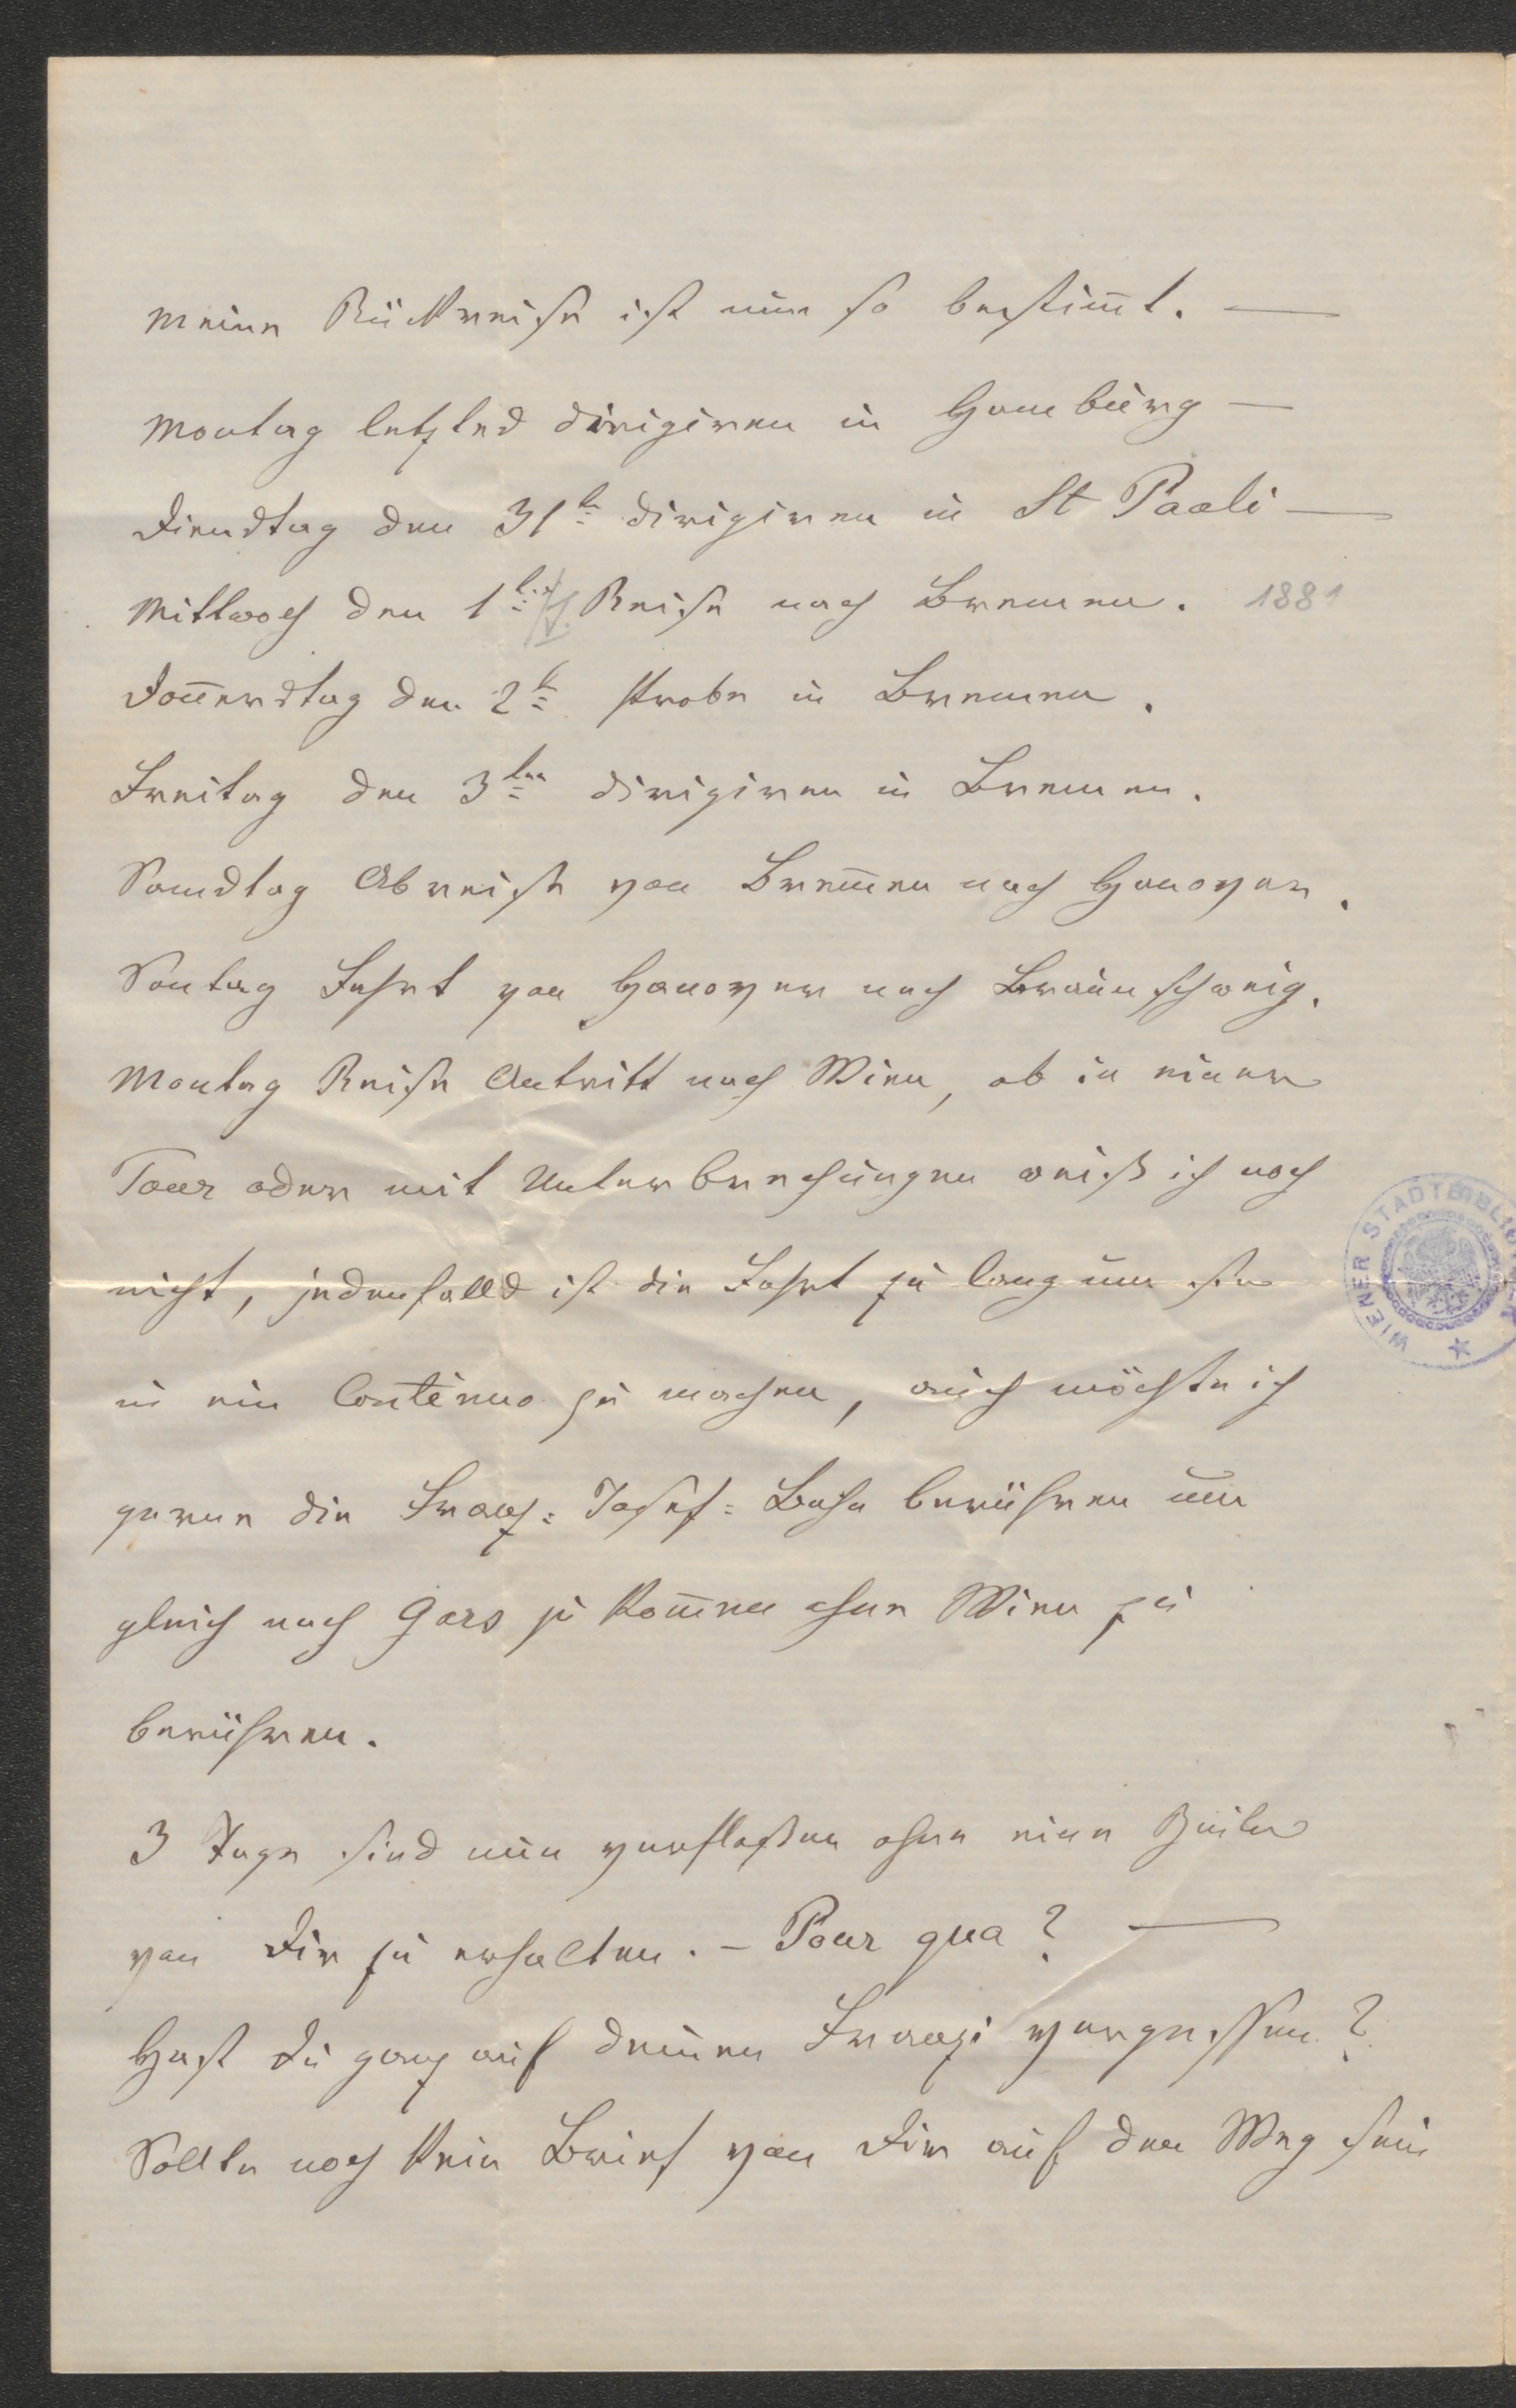 Meine Rückreise ist nun so bestim̄t. —
Montag letztes dirigiren in Hamburg —
Dienstag den 31t dirigiren in St Pauli —
Mittwoch den 1ten Reise nach Bremen. 1881
Don̄erstag den 2t Probe in Bremen.
Freitag den 3ten dirigiren in Bremen.
Samstag Abreise von Brem̄en nach Hanover.
Sontag Fahrt von Hanover nach Braunschweig.
Montag Reise Antritt nach Wien, ob in einer
Tour oder mit Unterbrechungen weiß ich noch
nicht, jedenfalls ist die Fahrt zu lang um sie
in ein Continuo zu machen, auch möchte ich
gerne die Franz=Josef=Bahn berühren um
gleich nach Gars zu kom̄en ohne Wien zu
berühren.
3 Tage sind nun verfloßen ohne eine Zeile
von Dir zu erhalten. – Pour qua? —
Hast Du ganz auf deinen Franzi vergessen?
Sollte noch kein Brief von Dir auf den Weg sein
WIENER STADTBIBLIOTHEK